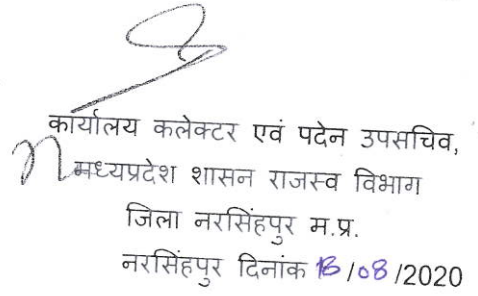 कार्यालय कलेक्टर एवं पदेन उपसचिव,
मध्यप्रदेश शासन राजस्व विभाग
जिला नरसिंहपुर म.प्र.
नरसिंहपुर दिनांक 18/08/2020